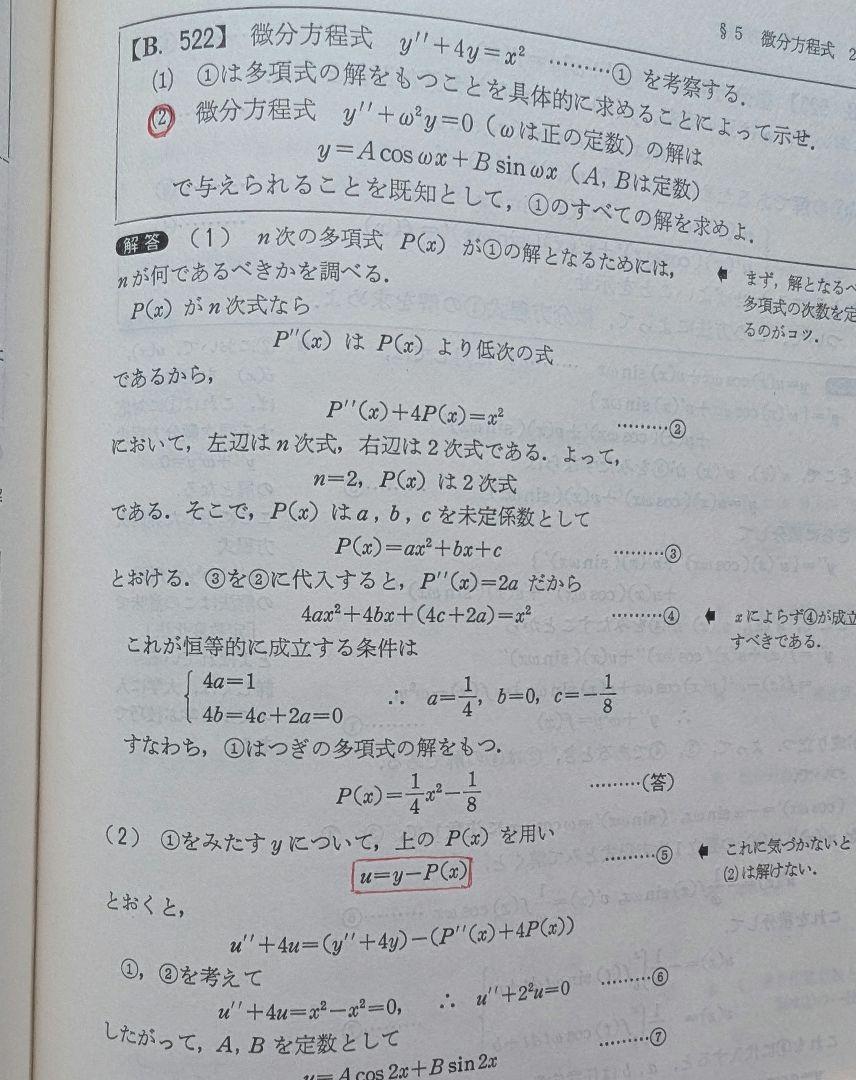 §5 微分方程式 2
【B. 522】 微分方程式 y''+4y=x² ………① を考察する.
(1) ①は多項式の解をもつことを具体的に求めることによって示せ.
(2) 微分方程式 y''+ω²y=0 (ωは正の定数) の解は
y=A cos ωx+B sin ωx (A, Bは定数)
で与えられることを既知として, ①のすべての解を求めよ.
解答 (1) n次の多項式 P(x) が①の解となるためには,
nが何であるべきかを調べる.
P(x) がn次式なら
P''(x) は P(x) より低次の式
であるから,
P''(x)+4P(x)=x² ………②
において, 左辺はn次式, 右辺は2次式である. よって,
n=2, P(x) は2次式
である. そこで, P(x) はa, b, cを未定係数として
P(x)=ax²+bx+c ………③
とおける. ③を②に代入すると, P''(x)=2a だから
4ax²+4bx+(4c+2a)=x² ………④
これが恒等的に成立する条件は
{ 4a=1
4b=4c+2a=0 ∴ a=1/4, b=0, c=-1/8
すなわち, ①はつぎの多項式の解をもつ.
P(x)=1/4x²-1/8 ………(答)
(2) ①をみたすyについて, 上の P(x) を用い
u=y-P(x) ………⑤
とおくと,
u''+4u=(y''+4y)-(P''(x)+4P(x))
①, ②を考えて
u''+4u=x²-x²=0, ∴ u''+2²u=0 ………⑥
したがって, A, B を定数として
u=A cos 2x+B sin 2x ………⑦
まず, 解となるべ
多項式の次数を定
るのがコツ.
xによらず④が成立
すべきである.
これに気づかないと
(2)は解けない.